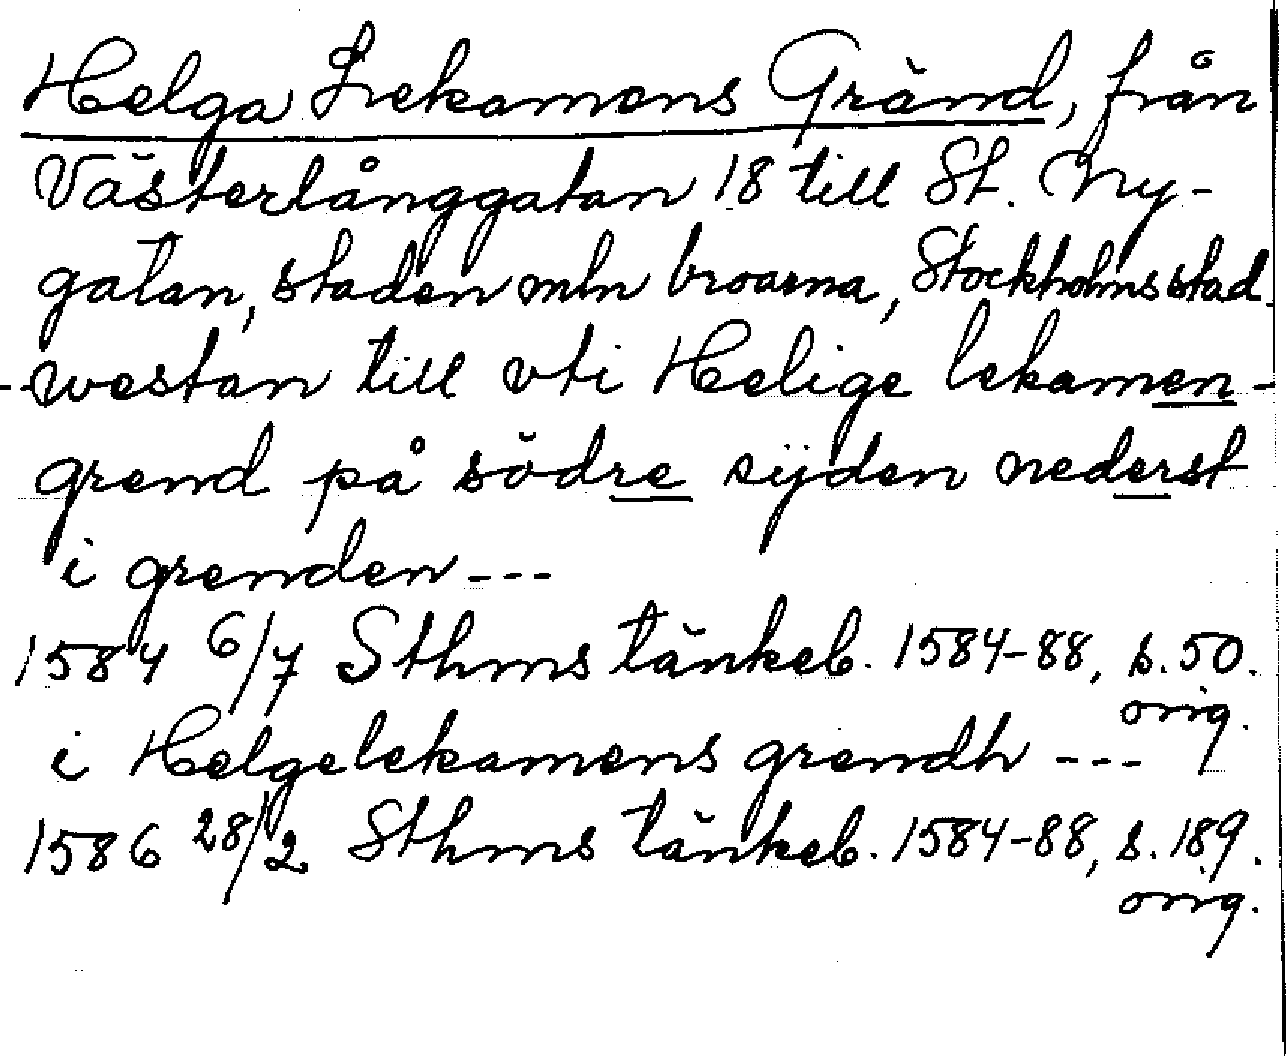 Helga Lekamens Gränd, från
Västerlånggatan 18 till St. Ny-
gatan, staden mln broarna, Stockholms stad.
- westan till vti Helige lekamen-
grend på södre sijden nederst
i grenden ---
1584 6/7 Sthms tänkeb. 1584-88, s. 50.
orig.
i Helgelekamens grendh ---
1586 28/2 Sthms tänkeb. 1584-88, s. 189.
orig.